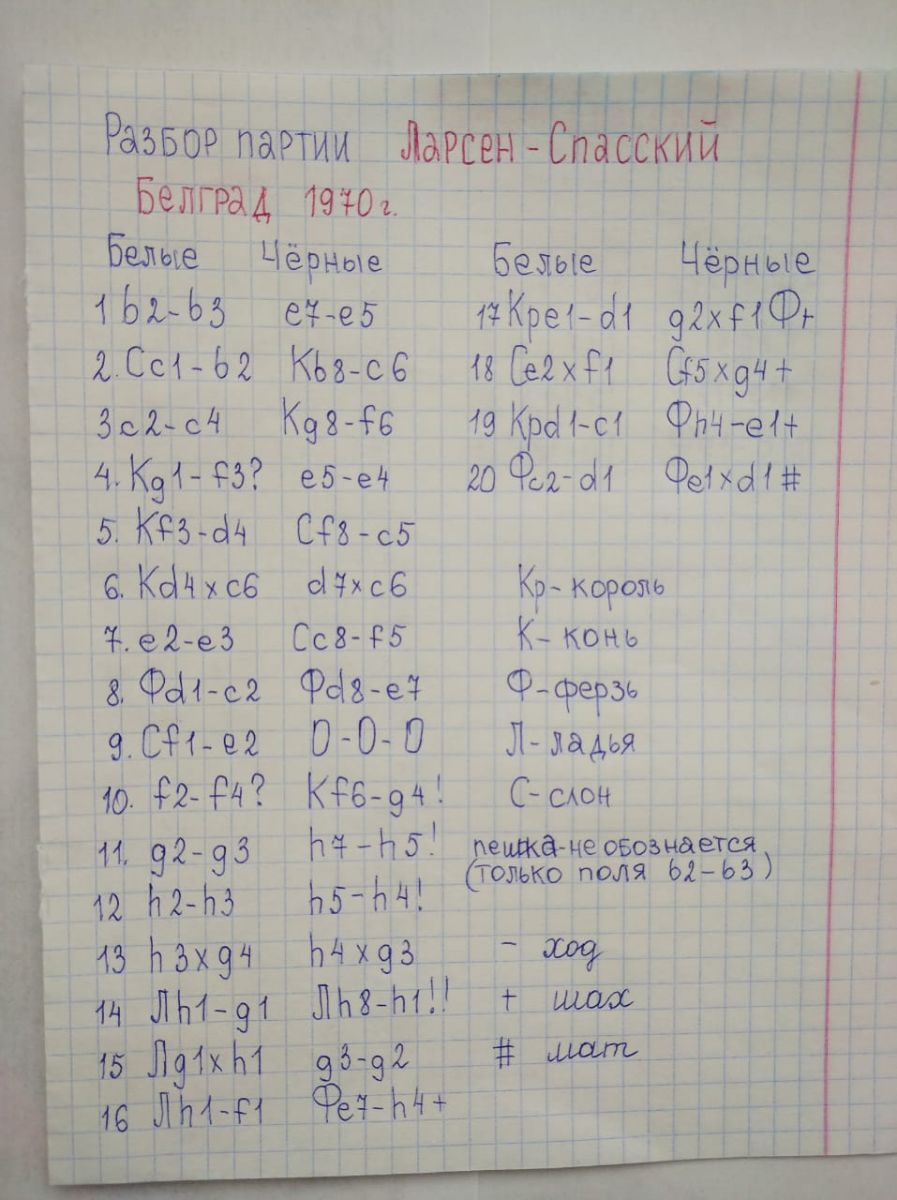 Разбор партии Ларсен - Спасский
Белград 1970г.
Белые Чёрные
1 b2-b3 e7-e5
2. Сc1-b2 Кb8-c6
3 c2-c4 Кg8-f6
4. Кg1-f3? e5-e4
5. Кf3-d4 Сf8-c5
6. Кd4xc6 d7xc6
7. e2-e3 Сc8-f5
8. Фd1-c2 Фd8-e7
9. Сf1-e2 0-0-0
10. f2-f4? Кf6-g4!
11. g2-g3 h7-h5!
12 h2-h3 h5-h4!
13 h3xg4 h4xg3
14 Лh1-g1 Лh8-h1!!
15 Лg1xh1 g3-g2
16 Лh1-f1 Фe7-h4+
Белые Чёрные
17 Крe1-d1 g2xf1Ф+
18 Сe2xf1 Сf5xg4+
19 Крd1-c1 Фh4-e1+
20 Фc2-d1 Фe1xd1#
Кр- король
К- конь
Ф-ферзь
Л-ладья
С-слон
пешка-не обознается
(только поля b2-b3)
- ход
+ шах
# мат